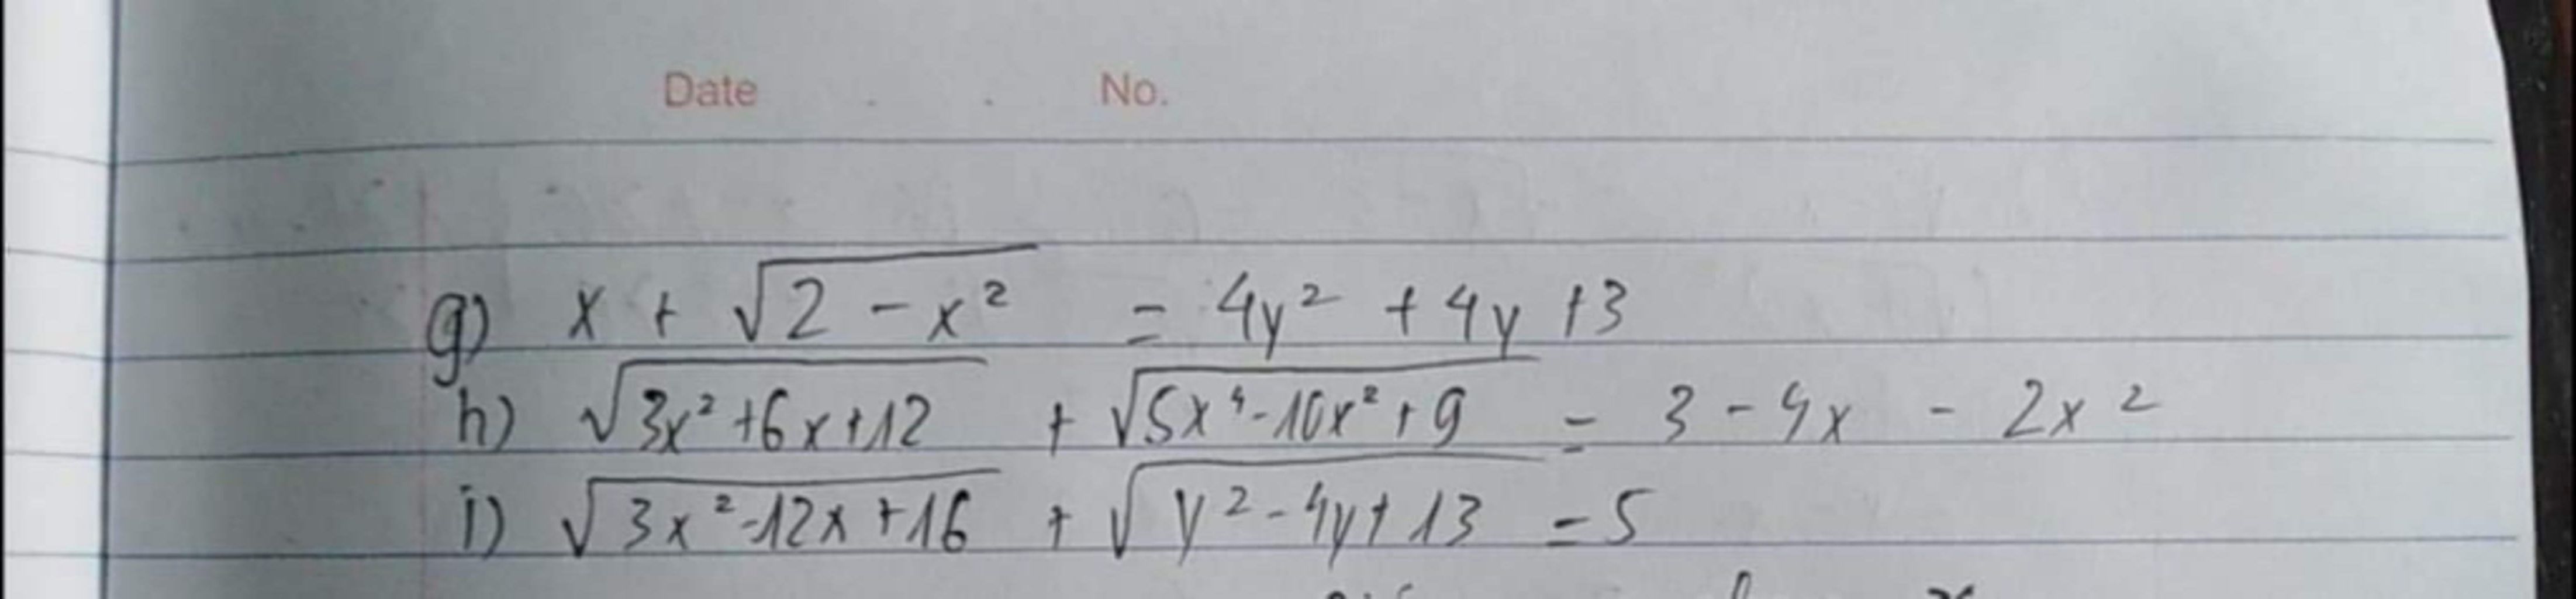 Date . . No.
g) x + √2 - x² = 4y² + 4y + 3
h) √3x² + 6x + 12 + √5x⁴ - 10x² + 9 = 3 - 4x - 2x²
i) √3x² - 12x + 16 + √y² - 4y + 13 = 5